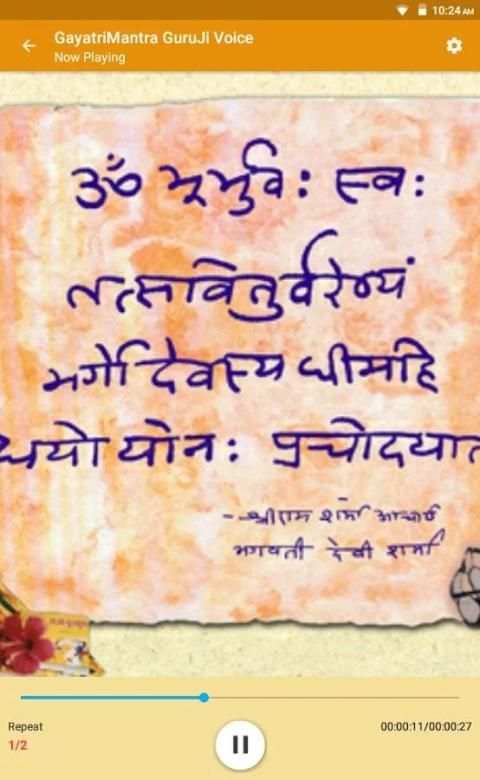 10:24 AM
GayatriMantra GuruJi Voice
Now Playing
ॐ भूर्भुवः स्वः
तत्सवितुर्वरेण्यं
भर्गो देवस्य धीमहि
धियो यो नः प्रचोदयात
- श्रीराम शर्मा आचार्य
भगवती देवी शर्मा
Repeat
00:00:11/00:00:27
1/2